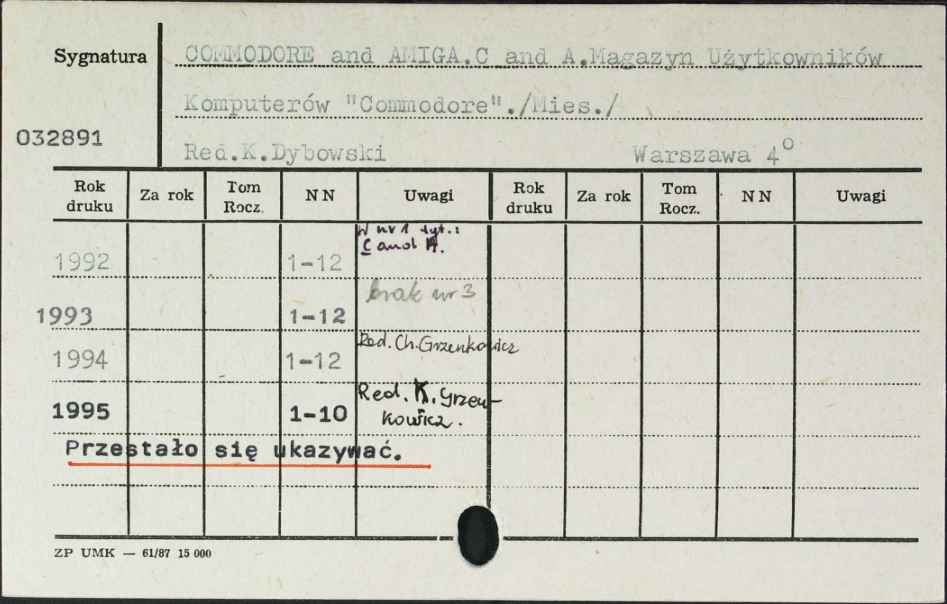 Sygnatura COMMODORE and AMIGA.C and A.Magazyn Użytkowników
Komputerów "Commodore"./Mies./
032891
Red.K.Dybowski Warszawa 4°
Rok druku Za rok Tom Rocz. NN Uwagi Rok druku Za rok Tom Rocz. NN Uwagi
W nr 1 tyt.:
C and A.
1992 1-12
brak nr 3
1993 1-12
Red. Ch. Grzenkowicz
1994 1-12
Red. K. Grzen-
1995 1-10 kowicz.
Przestało się ukazywać.
ZP UMK — 61/87 15 000